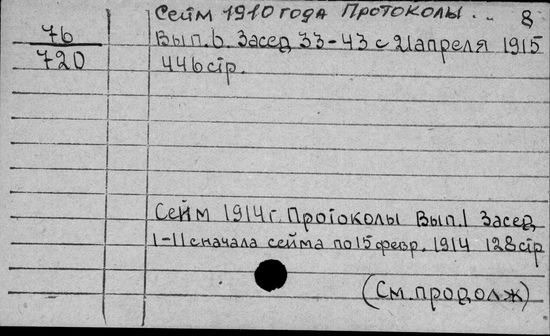 Сейм 1910 года Протоколы... 8
76
720
Вып. 6. Засед 33-43 с 21 апреля 1915
446 стр.
Сейм 1914 г. Протоколы Вып. 1 Засед
1-11 с начала сейма по 15 февр. 1914 128 стр
(См. продолж)